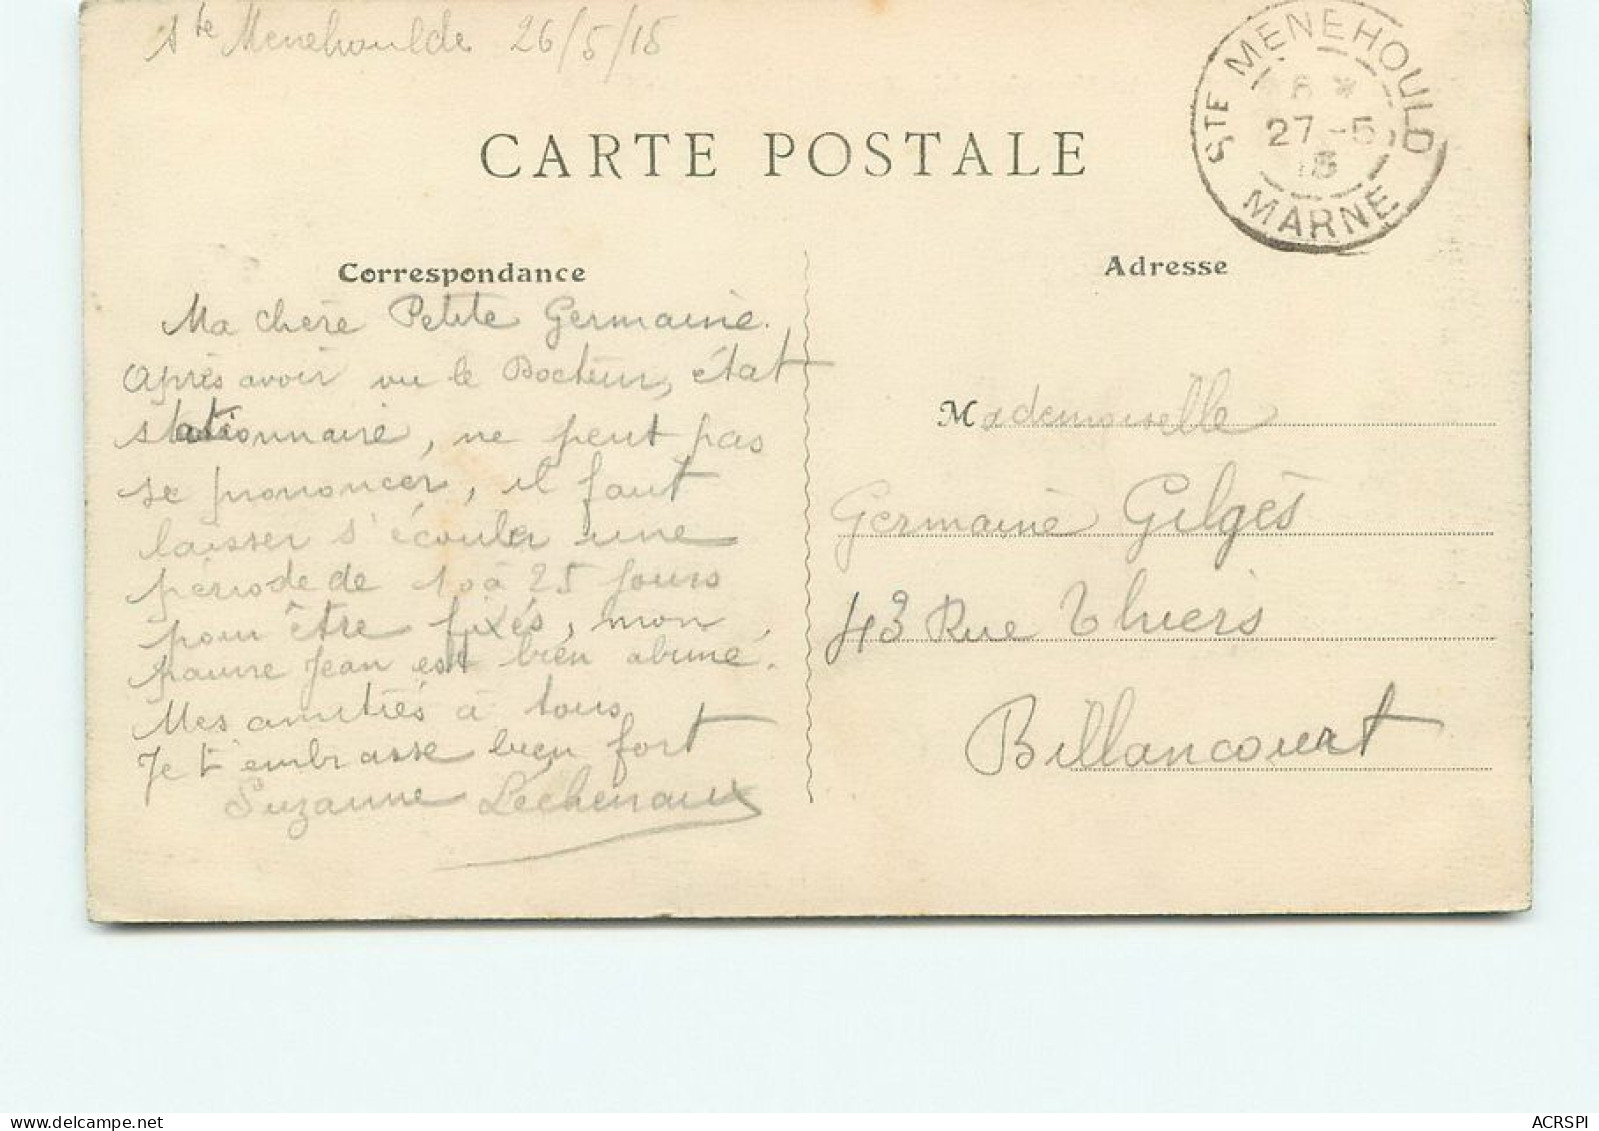 Ste Menehoulde 26/5/15
STE MENEHOULD
6 *
27-5
15
MARNE
CARTE POSTALE
Correspondance
Adresse
Ma chère Petite Germaine.
Après avoir vu le Docteur, état
stationnaire, ne peut pas
se prononcer, il faut
laisser s'écouler une
période de 10 à 25 jours
pour être fixés, mon
pauvre Jean est bien abimé.
Mes amitiés à tous
Je t'embrasse bien fort
Suzanne Lechenaux
Mademoiselle
Germaine Gilgès
43 Rue Thiers
Billancourt
www.delcampe.net
ACRSPI